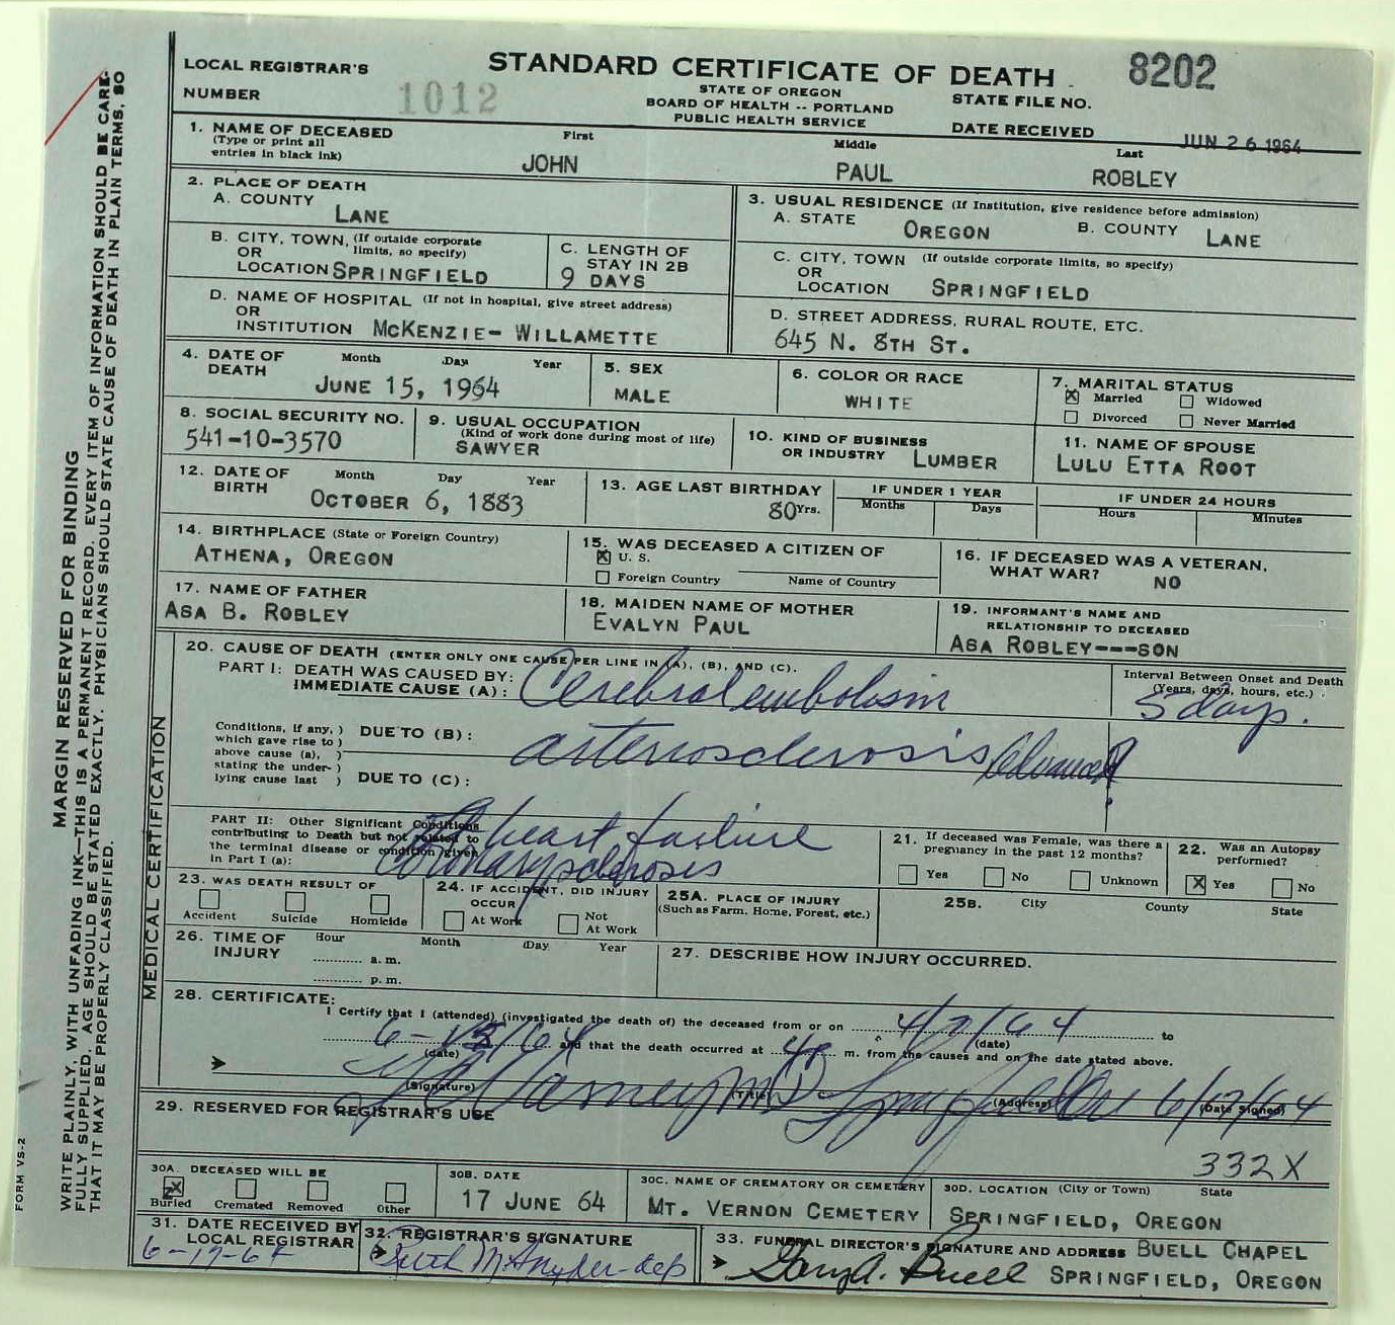 LOCAL REGISTRAR'S
NUMBER 1012
STANDARD CERTIFICATE OF DEATH
STATE OF OREGON
BOARD OF HEALTH -- PORTLAND
PUBLIC HEALTH SERVICE
8202
STATE FILE NO.
DATE RECEIVED JUN 26 1964
1. NAME OF DECEASED First Middle Last
(Type or print all
entries in black ink)
JOHN PAUL ROBLEY
2. PLACE OF DEATH
A. COUNTY
LANE
B. CITY, TOWN, (If outside corporate
OR limits, so specify)
LOCATION SPRINGFIELD
C. LENGTH OF
STAY IN 2B
9 DAYS
D. NAME OF HOSPITAL (If not in hospital, give street address)
OR
INSTITUTION MCKENZIE- WILLAMETTE
3. USUAL RESIDENCE (If Institution, give residence before admission)
A. STATE OREGON B. COUNTY LANE
C. CITY, TOWN (If outside corporate limits, so specify)
OR
LOCATION SPRINGFIELD
D. STREET ADDRESS, RURAL ROUTE, ETC.
645 N. 8TH ST.
4. DATE OF Month Day Year
DEATH
JUNE 15, 1964
5. SEX
MALE
6. COLOR OR RACE
WHITE
7. MARITAL STATUS
X Married Widowed
Divorced Never Married
8. SOCIAL SECURITY NO.
541-10-3570
9. USUAL OCCUPATION
(Kind of work done during most of life)
SAWYER
10. KIND OF BUSINESS
OR INDUSTRY LUMBER
11. NAME OF SPOUSE
LULU ETTA ROOT
12. DATE OF Month Day Year
BIRTH
OCTOBER 6, 1883
13. AGE LAST BIRTHDAY
80 Yrs.
IF UNDER 1 YEAR
Months Days
IF UNDER 24 HOURS
Hours Minutes
14. BIRTHPLACE (State or Foreign Country)
ATHENA, OREGON
15. WAS DECEASED A CITIZEN OF
X U. S.
Foreign Country Name of Country
16. IF DECEASED WAS A VETERAN,
WHAT WAR? NO
17. NAME OF FATHER
ASA B. ROBLEY
18. MAIDEN NAME OF MOTHER
EVALYN PAUL
19. INFORMANT'S NAME AND
RELATIONSHIP TO DECEASED
ASA ROBLEY---SON
20. CAUSE OF DEATH (ENTER ONLY ONE CAUSE PER LINE IN (A), (B), AND (C).
PART I: DEATH WAS CAUSED BY:
IMMEDIATE CAUSE (A): Cerebral embolism
Interval Between Onset and Death
(Years, days, hours, etc.)
5 days.
Conditions, if any, )
which gave rise to )
above cause (a), )
stating the under- )
lying cause last )
DUE TO (B): arteriosclerosis
DUE TO (C):
PART II: Other Significant Conditions
contributing to Death but not related to
the terminal disease or condition given
in Part I (a):
heart failure
coronary sclerosis
21. If deceased was Female, was there a
pregnancy in the past 12 months?
Yes No Unknown
22. Was an Autopsy
performed?
X Yes No
23. WAS DEATH RESULT OF
Accident Suicide Homicide
24. IF ACCIDENT, DID INJURY
OCCUR
At Work Not
At Work
25A. PLACE OF INJURY
(Such as Farm, Home, Forest, etc.)
25B. City County State
26. TIME OF Hour Month Day Year
INJURY
a. m.
p. m.
27. DESCRIBE HOW INJURY OCCURRED.
28. CERTIFICATE:
I Certify that I (attended) (investigated the death of) the deceased from or on 4/7/64 to
(date)
6-15/64 and that the death occurred at m. from the causes and on the date stated above.
(date)
M D Springfield Ore 6/17/64
(Signature) (Title) (Address) (Date Signed)
29. RESERVED FOR REGISTRAR'S USE
332X
30A. DECEASED WILL BE
X Buried Cremated Removed Other
30B. DATE
17 JUNE 64
30C. NAME OF CREMATORY OR CEMETERY
MT. VERNON CEMETERY
30D. LOCATION (City or Town) State
SPRINGFIELD, OREGON
31. DATE RECEIVED BY
LOCAL REGISTRAR
6-17-64
32. REGISTRAR'S SIGNATURE
Ruth M. Snyder-dep
33. FUNERAL DIRECTOR'S SIGNATURE AND ADDRESS BUELL CHAPEL
Gary A. Buell SPRINGFIELD, OREGON
MEDICAL CERTIFICATION
MARGIN RESERVED FOR BINDING
WRITE PLAINLY, WITH UNFADING INK—THIS IS A PERMANENT RECORD. EVERY ITEM OF INFORMATION SHOULD BE CARE-
FULLY SUPPLIED. AGE SHOULD BE STATED EXACTLY. PHYSICIANS SHOULD STATE CAUSE OF DEATH IN PLAIN TERMS, SO
THAT IT MAY BE PROPERLY CLASSIFIED.
FORM VS-2